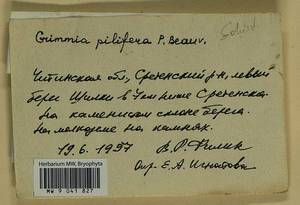 Grimmia pilifera P. Beauv.
Читинская обл., Сретенский р-н, левый
берег Шилки в 7 км ниже Сретенска.
На каменистом склоне берега.
На мелкоземе на камнях.
19.6.1957 В.Р. Филин
Опр. Е.А. Игнатова
Herbarium MW, Bryophyta
MW 9 041 827